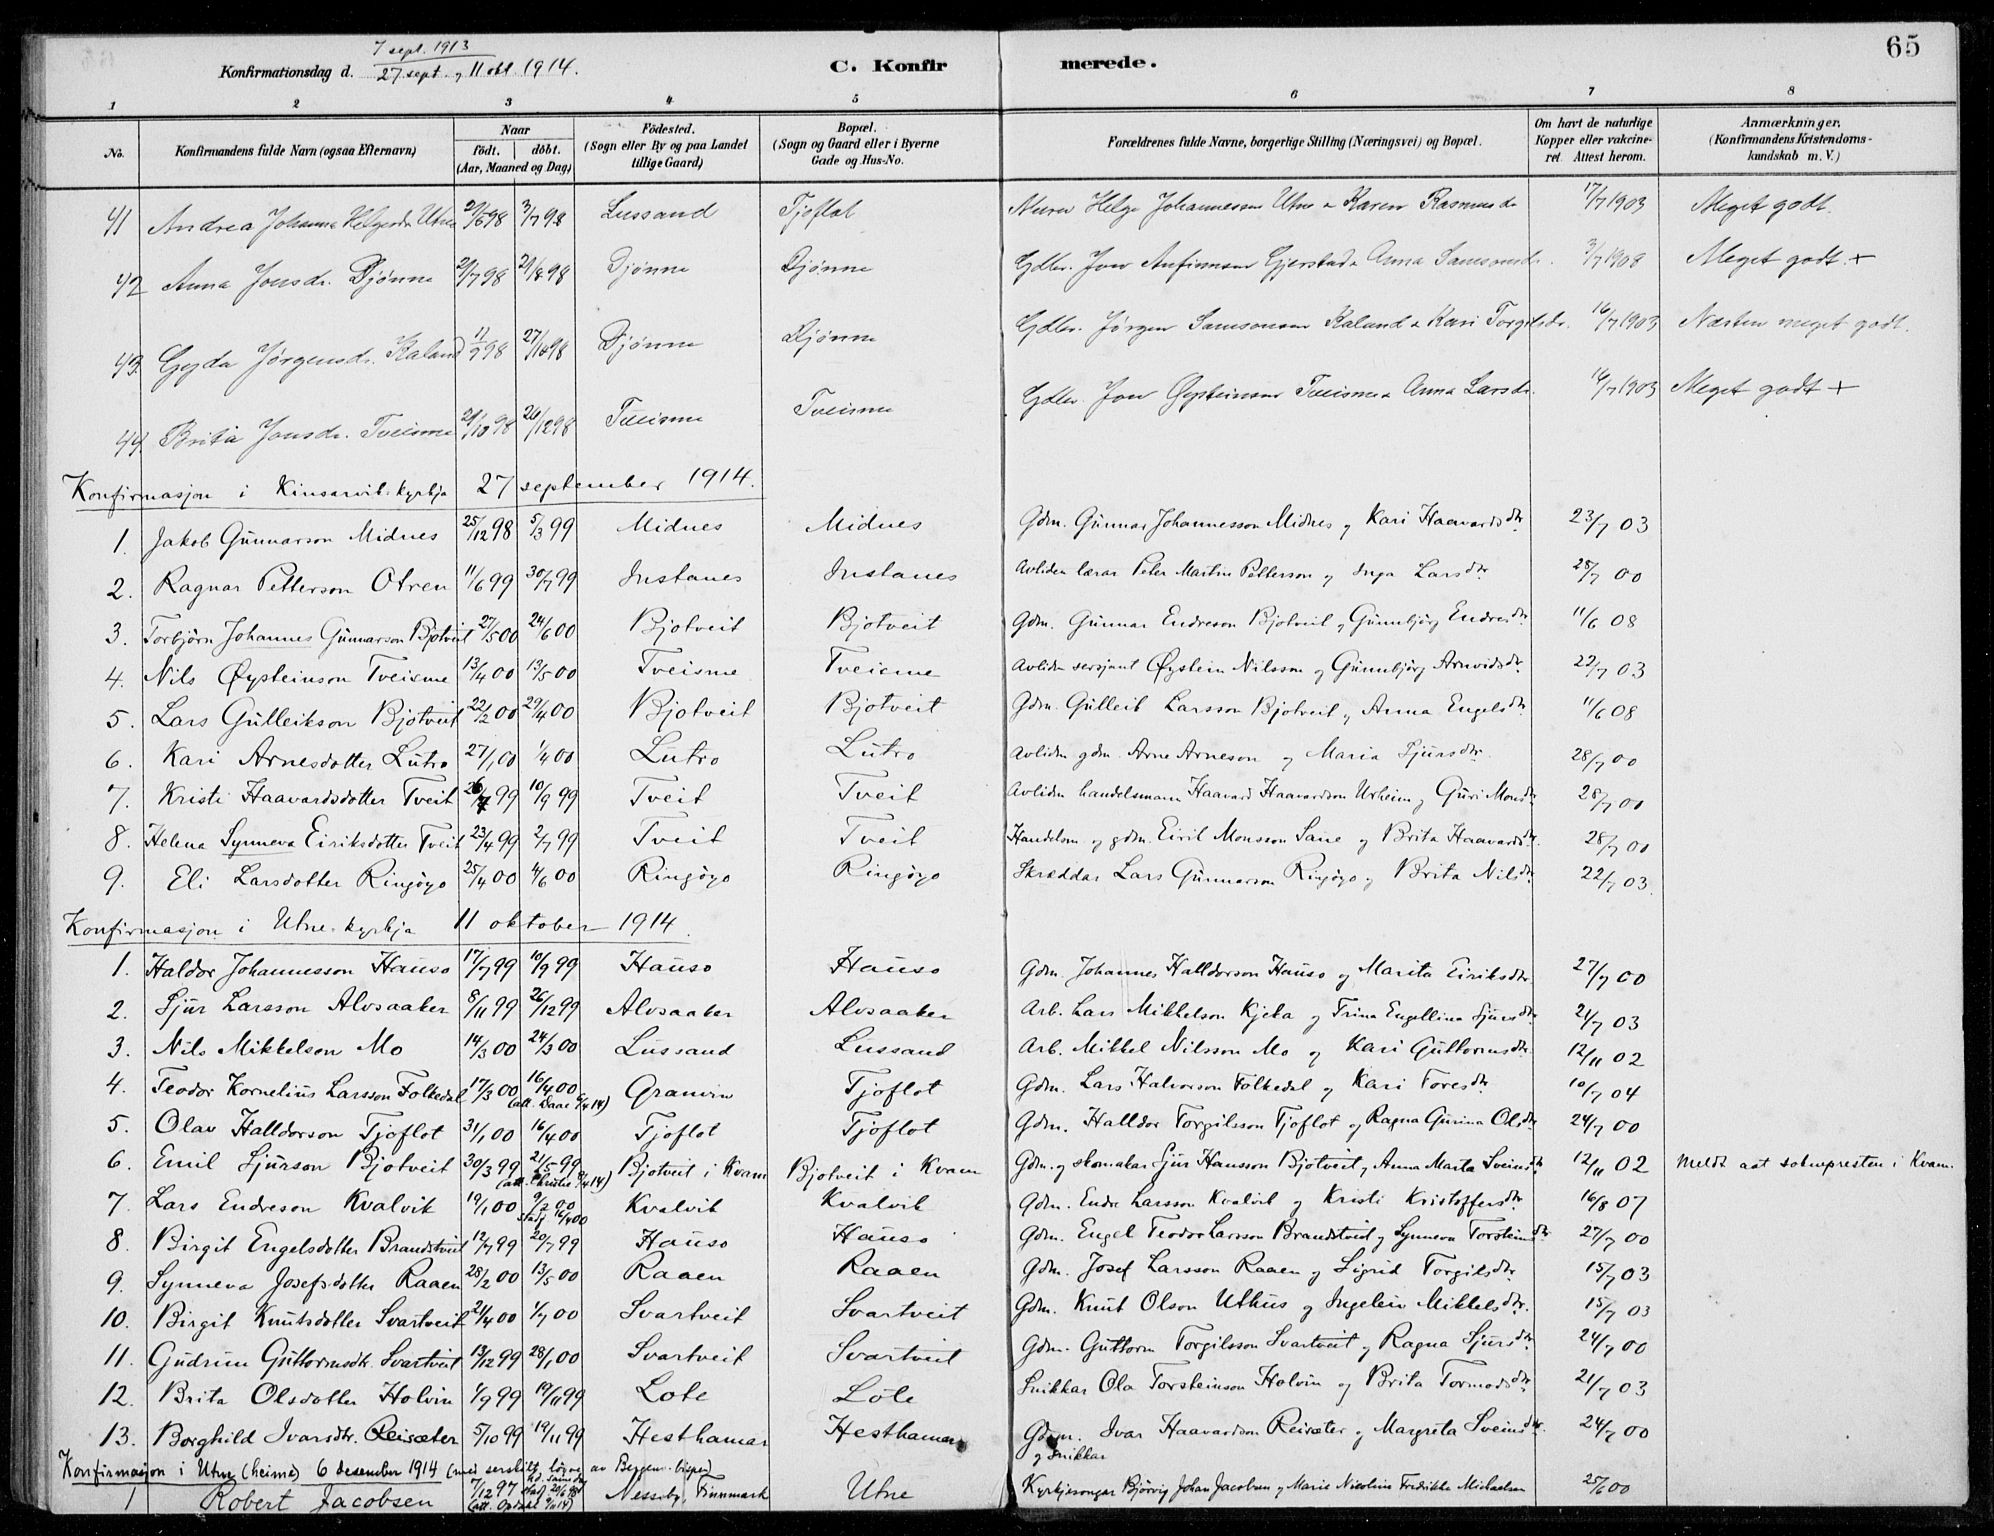 65
7 sept. 1913
Konfirmationsdag d. 27 sept. og 11 okt. 1914.
C. Konfirmerede.
1 2 3 4 5 6 7 8
No.
Konfirmandens fulde Navn (ogsaa Efternavn)
Naar
født. døbt.
(Aar, Maaned og Dag)
Fødested.
(Sogn eller By og paa Landet
tillige Gaard)
Bopæl.
(Sogn og Gaard eller i Byerne
Gade og Hus-No.
Forældrenes fulde Navne, borgerlige Stilling (Næringsvei) og Bopæl.
Om havt de naturlige
Kopper eller vakcine-
ret. Attest herom.
Anmærkninger.
(Konfirmandens Kristendoms-
kundskab m. V.)
41 Andrea Johanna Helgesdr Utne 29/5 98 3/7 98 Lussand Tjoflot Murer Helge Johannessen Utne & Karen Rasmusdr 17/7 1903 Meget godt.
42 Anna Jonsdr. Djønne 21/7 98 21/8 98 Djønne Djønne Gdbr. Jon Anfinnsen Gjerstad & Anna Samsonsdr. 3/7 1908 Meget godt. +
43. Gyda Jørgensdr. Kaland 11/9 98 27/10 98 Djønne Djønne Gdbr. Jørgen Samsonsen Kaland & Kari Torgilsdr. 16/7 1903 Næsten meget godt.
44 Brita Jonsdr. Tveisme 29/10 98 26/12 98 Tveisme Tveisme Gdbr. Jon Øysteinsen Tveisme & Anna Larsdr. 16/7 1903 Meget godt +
Konfirmasjon i Kinsarvik-kyrkja 27 september 1914.
1. Jakob Gunnarson Midnes 25/12 98 5/3 99 Midnes Midnes Gdm. Gunnar Johannesson Midnes og Kari Haavardsdtr. 23/7 03
2. Ragnar Petterson Otren 11/6 99 30/7 99 Instanes Instanes Avliden lærar Peter Martin Petterson og Inga Larsdtr 28/7 00
3. Torbjörn Johannes Gunnarson Bjotveit 27/5 00 24/6 00 Bjotveit Bjotveit Gdm. Gunnar Endreson Bjotveit og Gunnbjörg Endresdtr. 11/6 08
4. Nils Øysteinson Tveisme 13/4 00 13/5 00 Tveisme Tveisme Avliden sersjant Øystein Nilsson og Gunnbjörg Arnvidsdtr. 22/7 03
5. Lars Gulleikson Bjotveit 22/2 00 29/4 00 Bjotveit Bjotveit Gdm. Gulleik Larsson Bjotveit og Anna Engelsdtr. 11/6 08
6. Kari Arnesdotter Lutro 27/1 00 1/4 00 Lutro Lutro Avliden gdm. Arne Arneson og Maria Sjursdtr. 28/7 00
7. Kristi Haavardsdotter Tveit 26/7 99 10/9 99 Tveit Tveit Avliden handelsmann Haavard Haavardson Urheim og Guri Monsdtr 28/7 00
8. Helena Synneva Eiriksdotter Tveit 23/4 99 2/7 99 Tveit Tveit Handelsm. og gdm. Eirik Monsson Sane og Brita Haavardsdtr. 28/7 00
9. Eli Larsdotter Ringöyo 25/4 00 4/6 00 Ringöyo Ringöyo Skræddar Lars Gunnarson Ringöyo og Brita Nilsdtr 22/7 03.
Konfirmasjon i Utne-kyrkja 11 oktober 1914.
1. Haldor Johannesson Hauso 17/7 99 10/9 99 Hauso Hauso Gdm. Johannes Halldorson Hauso og Marita Eiriksdtr. 27/7 00
2. Sjur Larsson Alvsaaker 8/11 99 26/12 99 Alvsaaker Alvsaaker Arb. Lars Mikkelson Kjeka og Trina Engellina Sjursdtr 21/7 03
3. Nils Mikkelson Mo 14/3 00 24/3 00 Lussand Lussand Arb. Mikkel Nilsson Mo og Kari Guttormsdtr. 12/11 02
4. Teodor Kornelius Larsson Folkedal 17/3 00 16/4 00 (att. Daae 6/4 14) Granvin Tjoflot Gdm. Lars Halvorson Folkedal og Kari Toresdtr 10/7 04
5. Olav Halldorson Tjoflot 31/1 00 16/4 00 Tjoflot Tjoflot Gdm. Halldor Torgilsson Tjoflot og Ragna Gurina Olsdtr 24/7 00
6. Emil Sjurson Bjotveit 30/3 99 21/5 99 (att. Christie 9/4 14) Bjotveit i Kvam Bjotveit i Kvam Gdm. og skomakar Sjur Hansson Bjotveit og Anna Marta Sveinsdtr 12/11 02 Meldt aat soknepresten i Kvam.
7. Lars Endreson Kvalvik 19/1 00 9/2 00 stadf 16/4 00 Kvalvik Kvalvik Gdm. Endre Larsson Kvalvik og Kristi Kristoffersdtr. 16/8 07
8. Birgit Engelsdotter Brandstveit 12/7 99 20/7 99 Hauso Hauso Gdm. Engel Teodor Larsson Brandstveit og Synneva Torsteinsdtr. 27/7 00
9. Synneva Josefsdotter Raaen 28/2 00 13/5 00 Raaen Raaen Gdm. Josef Larsson Raaen og Sigrid Torgilsdtr. 15/7 03
10. Birgit Knutsdotter Svartveit 21/4 00 1/7 00 Svartveit Svartveit Gdm. Knut Olson Uthus og Ingeleiv Mikkelsdtr. 15/7 03
11. Gudrun Guttormsdtr. Svartveit 13/12 99 28/1 00 Svartveit Svartveit Gdm. Guttorm Torgilsson Svartveit og Ragna Sjursdtr. 24/7 00
12. Brita Olsdotter Holvin 1/9 99 19/11 99 Lote Lote Snikkar Ola Torsteinson Holvin og Brita Tormodsdtr 21/7 03
13. Borghild Ivarsdtr. Reisæter 5/10 99 19/11 99 Hesthamar Hesthamar Gdm. og Snikkar Ivar Haavardson Reisæter og Margreta Sveinsdtr. 24/7 00
Konfirmasjon i Utne (heime) 6 desember 1914 (med serskilt løyve av Bergens-bispen)
1 Robert Jacobsen 7/12 97 Nesseby, Finnmark Utne Kyrkjesongar Bjørvig Johan Jacobsen og Marie Nicoline Fredrikke Michaelsen 25/6 00